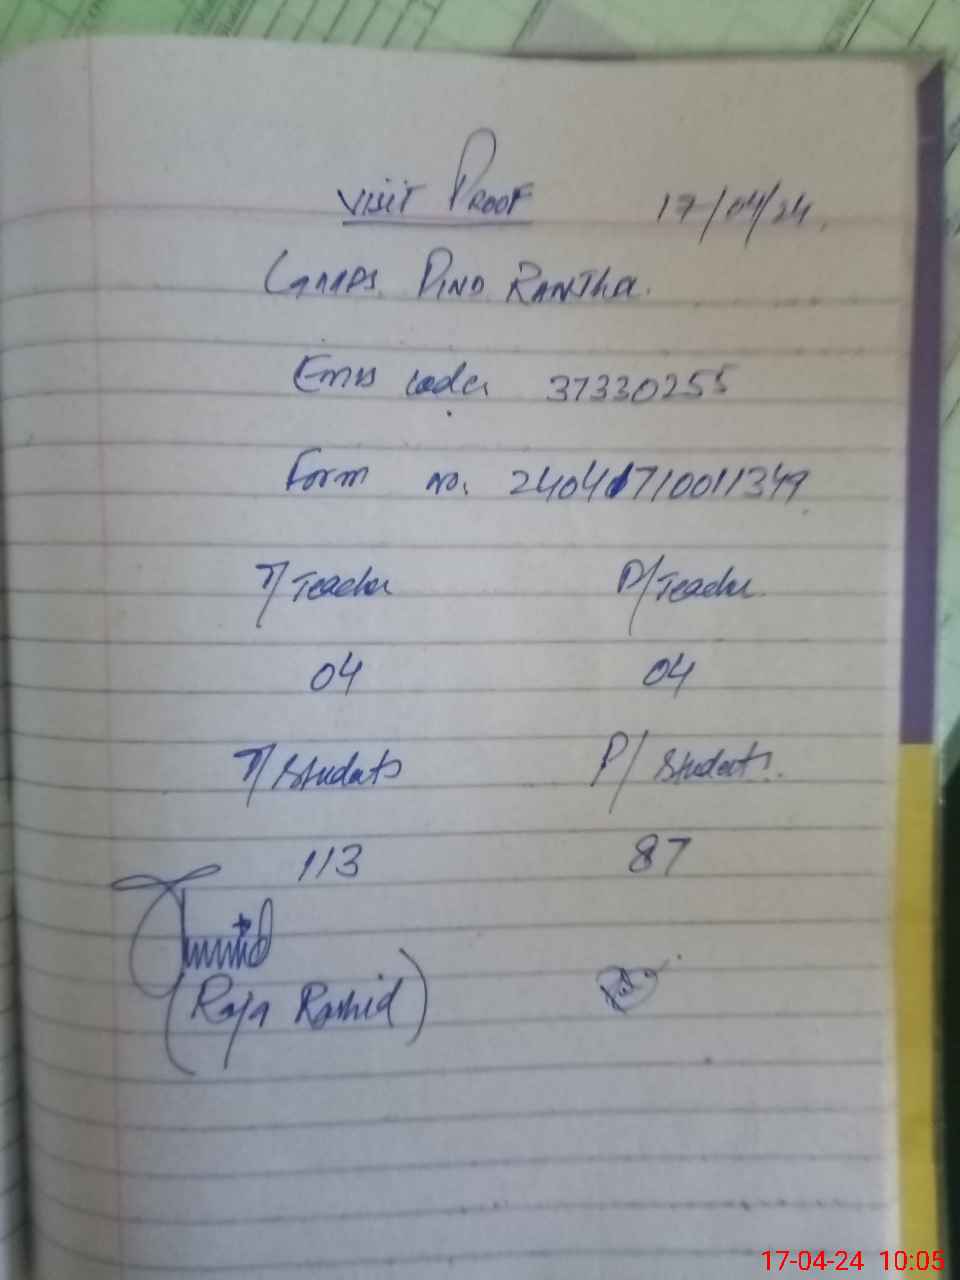 VISIT PROOF 17/04/24
GMPS PIND RANJHA.
Emis code 37330255
Form no. 24041710011349
T/Teacher P/Teacher
04 04
T/Students P/Students.
113 87
(Raja Rashid)
17-04-24 10:05